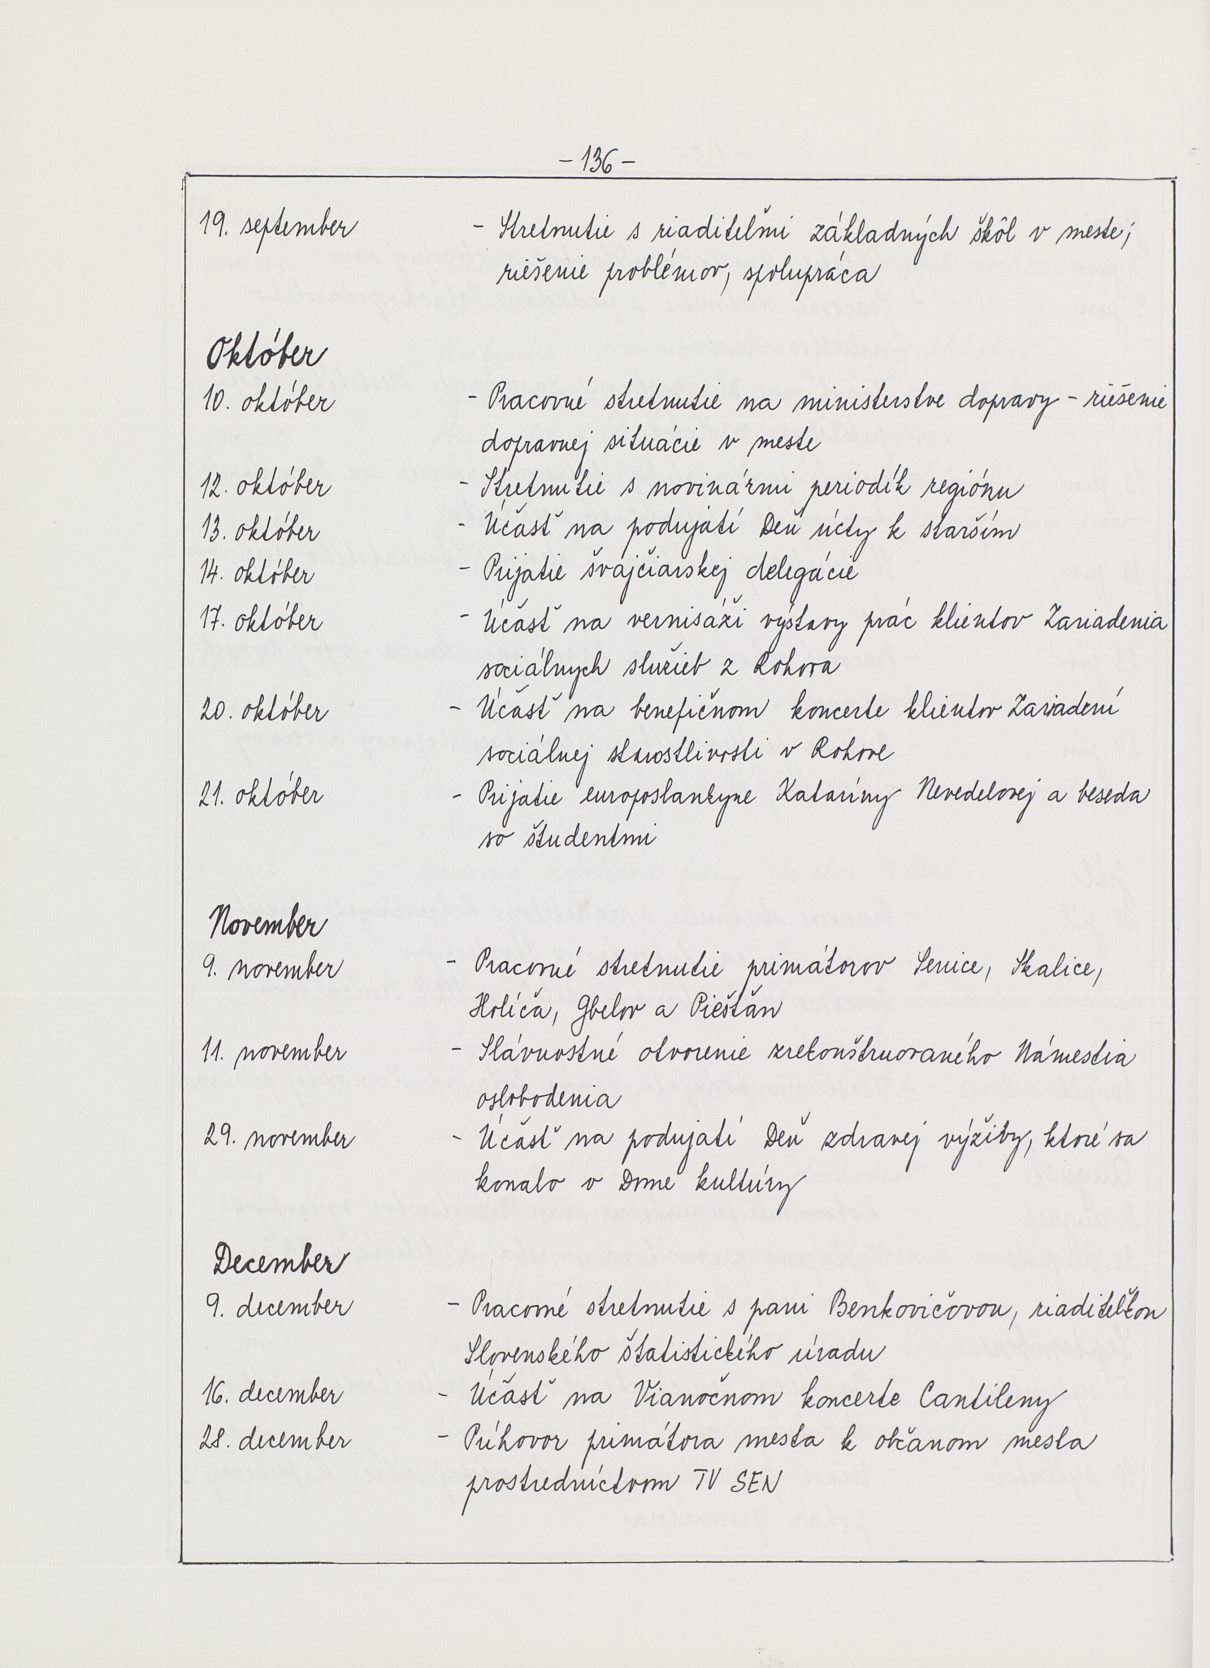 - 136 -
19. september - Stretnutie s riaditeľmi základných škôl v meste;
riešenie problémov, spolupráca
Október
10. október - Pracovné stretnutie na ministerstve dopravy - riešenie
dopravnej situácie v meste
12. október - Stretnutie s novinármi periodík regiónu
13. október - Účasť na podujatí Deň úcty k starším
14. október - Prijatie švajčiarskej delegácie
17. október - Účasť na vernisáži výstavy prác klientov Zariadenia
sociálnych služieb z Rohova
20. október - Účasť na benefičnom koncerte klientov Zariadení
sociálnej starostlivosti v Rohove
21. október - Prijatie europoslankyne Kataríny Nevedelovej a beseda
so študentmi
November
9. november - Pracovné stretnutie primátorov Senice, Skalice,
Holíča, Gbelov a Piešťan
11. november - Slávnostné otvorenie zrekonštruovaného Námestia
oslobodenia
29. november - Účasť na podujatí Deň zdravej výživy, ktoré sa
konalo v Dome kultúry
December
9. december - Pracovné stretnutie s pani Benkovičovou, riaditeľkou
Slovenského štatistického úradu
16. december - Účasť na Vianočnom koncerte Cantileny
28. december - Príhovor primátora mesta k občanom mesta
prostredníctvom TV SEN